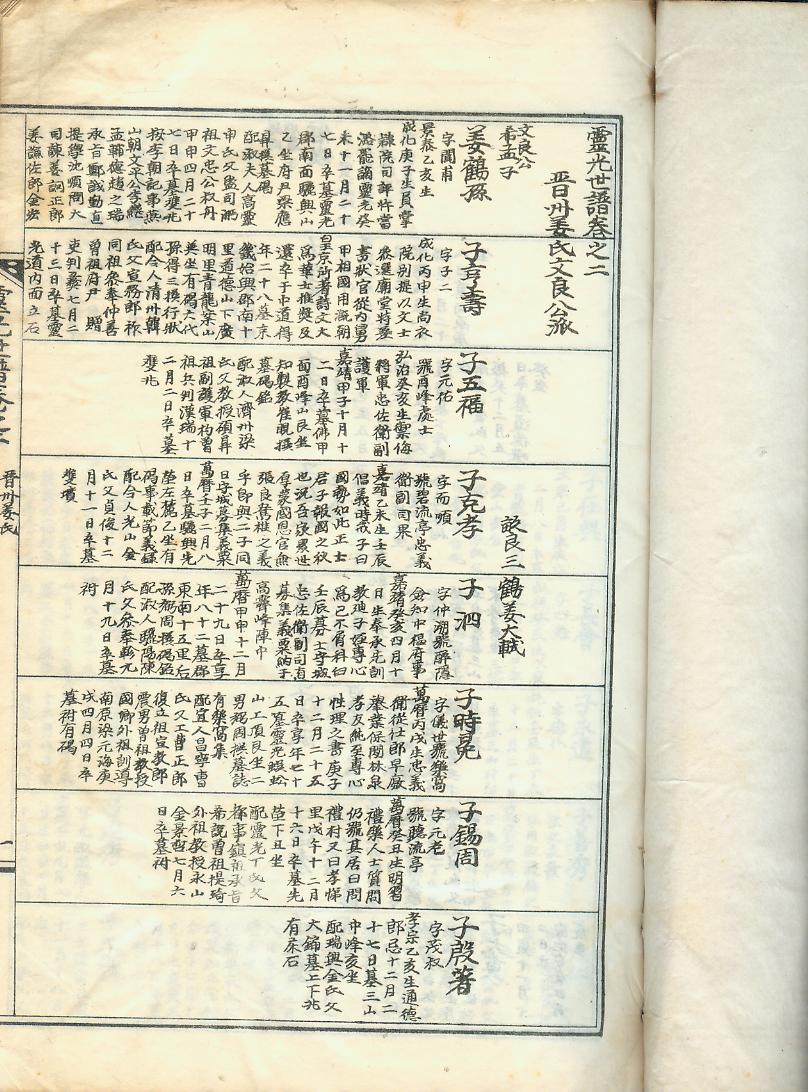 靈光世譜卷之二
晋州姜氏文良公派
文良公
希孟子
姜鶴孫
字聞甫
景泰乙亥生
成化庚子生員掌
隸院司評特當
潞罷謫靈光癸
未十一月二十
七日卒墓靈光
郡南面驪興山
乙坐府尹梁應
鼎撰墓碣
配淑夫人高靈
申氏父監司㴐
祖文忠公叔舟
甲申四月二十
七日卒墓雙兆
按李朝記事燕
山朝文平公李繼
孟輔德趙之瑞
承旨鄭誠勤直
提學沈順門大
司諫姜詗正郎
姜謙佐郎金宏
子亨壽
字子二
成化丙申生尚衣
院別提以文士
叅選廟堂特差
書狀官從內舅
甲相國用漑朝
皇京所著詩文大
爲華士推獎及
還卒于中道得
年二十八墓京
畿始興郡南十
里道德山下廣
明里青龍案山
㢲坐有碣六代
孫得三撰行狀
配令人清州韓
氏父宣務郎祚
同祖叅奉仲善
曾祖府尹 贈
吏判彛七月二
十三日卒墓靈
光道內面立石
子五福
字元祐
號酉峰處士
弘治癸亥生禦侮
將軍忠佐衛副
護軍
嘉靖甲子十月十
二日卒墓佛甲
面酉峰山艮坐
知製教崔晛撰
墓碣銘
配淑人濟州梁
氏父教授碩昇
祖副護軍枸曾
祖兵判漢瑞十
二月二日卒墓
雙兆
子克孝
字而順
號碧流亭忠義
衛副司果
嘉靖乙未生壬辰
倡義時戒子曰
國勢如此正士
君子報國之秋
也況吾家累世
厚蒙國恩官無
張良奮椎之義
乎即與二子同
日守城募集義粟
萬曆壬子二月八
日卒墓驪興先
塋左麓乙坐有
碣事載節義錄
配令人光山金
氏父貞俊十二
月十一日卒墓
雙墳
設良三 鶴姜大戟
子泗
字仲湖號醉隱
僉知中樞府事
嘉靖癸亥四月十
日生奉承先訓
教迪子姪專心
爲己不屑科臼
壬辰募士守城
忠佐衛副司直
募集義粟納于
高霽峰陣中
萬曆甲申十二月
二十九日卒享
年八十二墓郡
東南十五里后
孫翊周撰碣銘
配淑人驪陽陳
氏父叅奉軫元
月十九日卒墓
祔
子時冕
字儀世號雞窩
萬曆丙戌生忠義
衛從仕郎早廢
擧業保閑林泉
孝友純至專心
性理之書庚子
十二月二十五
日卒享年七十
五墓靈光蜈蚣
山工頂艮坐二
男瑒周撰墓誌
有藥窩集
配宜人昌寧曺
氏父工曹正郎
復立祖宣教郎
震男曾祖教授
國卿外祖訓導
南原梁元海庚
戌四月四日卒
墓祔有碣
子錫周
字元老
號聽流亭
萬曆癸丑生明習
禮樂人士質問
仍號其居曰問
禮村又曰孝悌
里戊午十二月
十六日卒墓先
塋下丑坐
配靈光丁氏父
擇事鎭祖承旨
希說曾祖提琦
外祖教授永山
金景哲七月六
日卒墓祔
子殷著
字茂叔
孝宗乙亥生通德
郎忌十二月二
十七日墓三山
中峰亥坐
配瑞興金氏父
大鏥墓上下兆
有床石
晋州姜氏